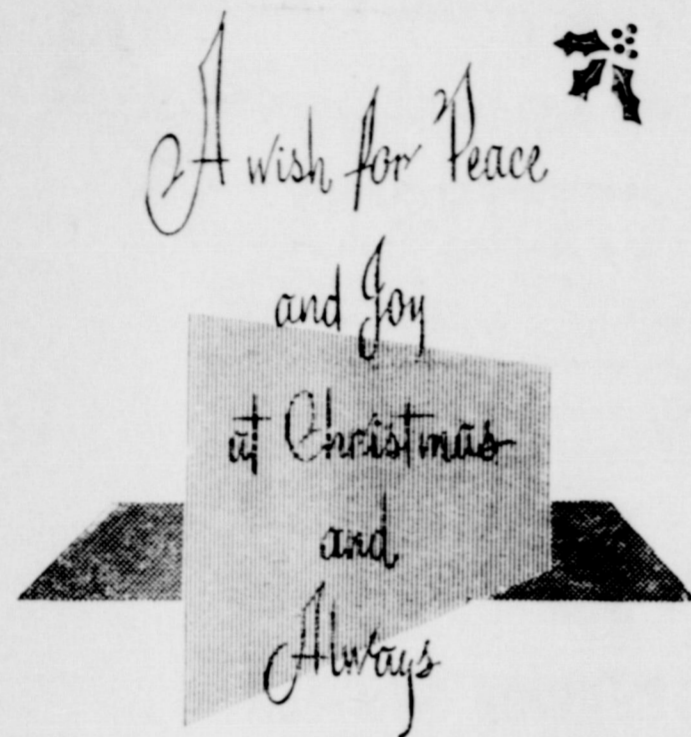 A wish for Peace
and Joy
at Christmas
and
Always